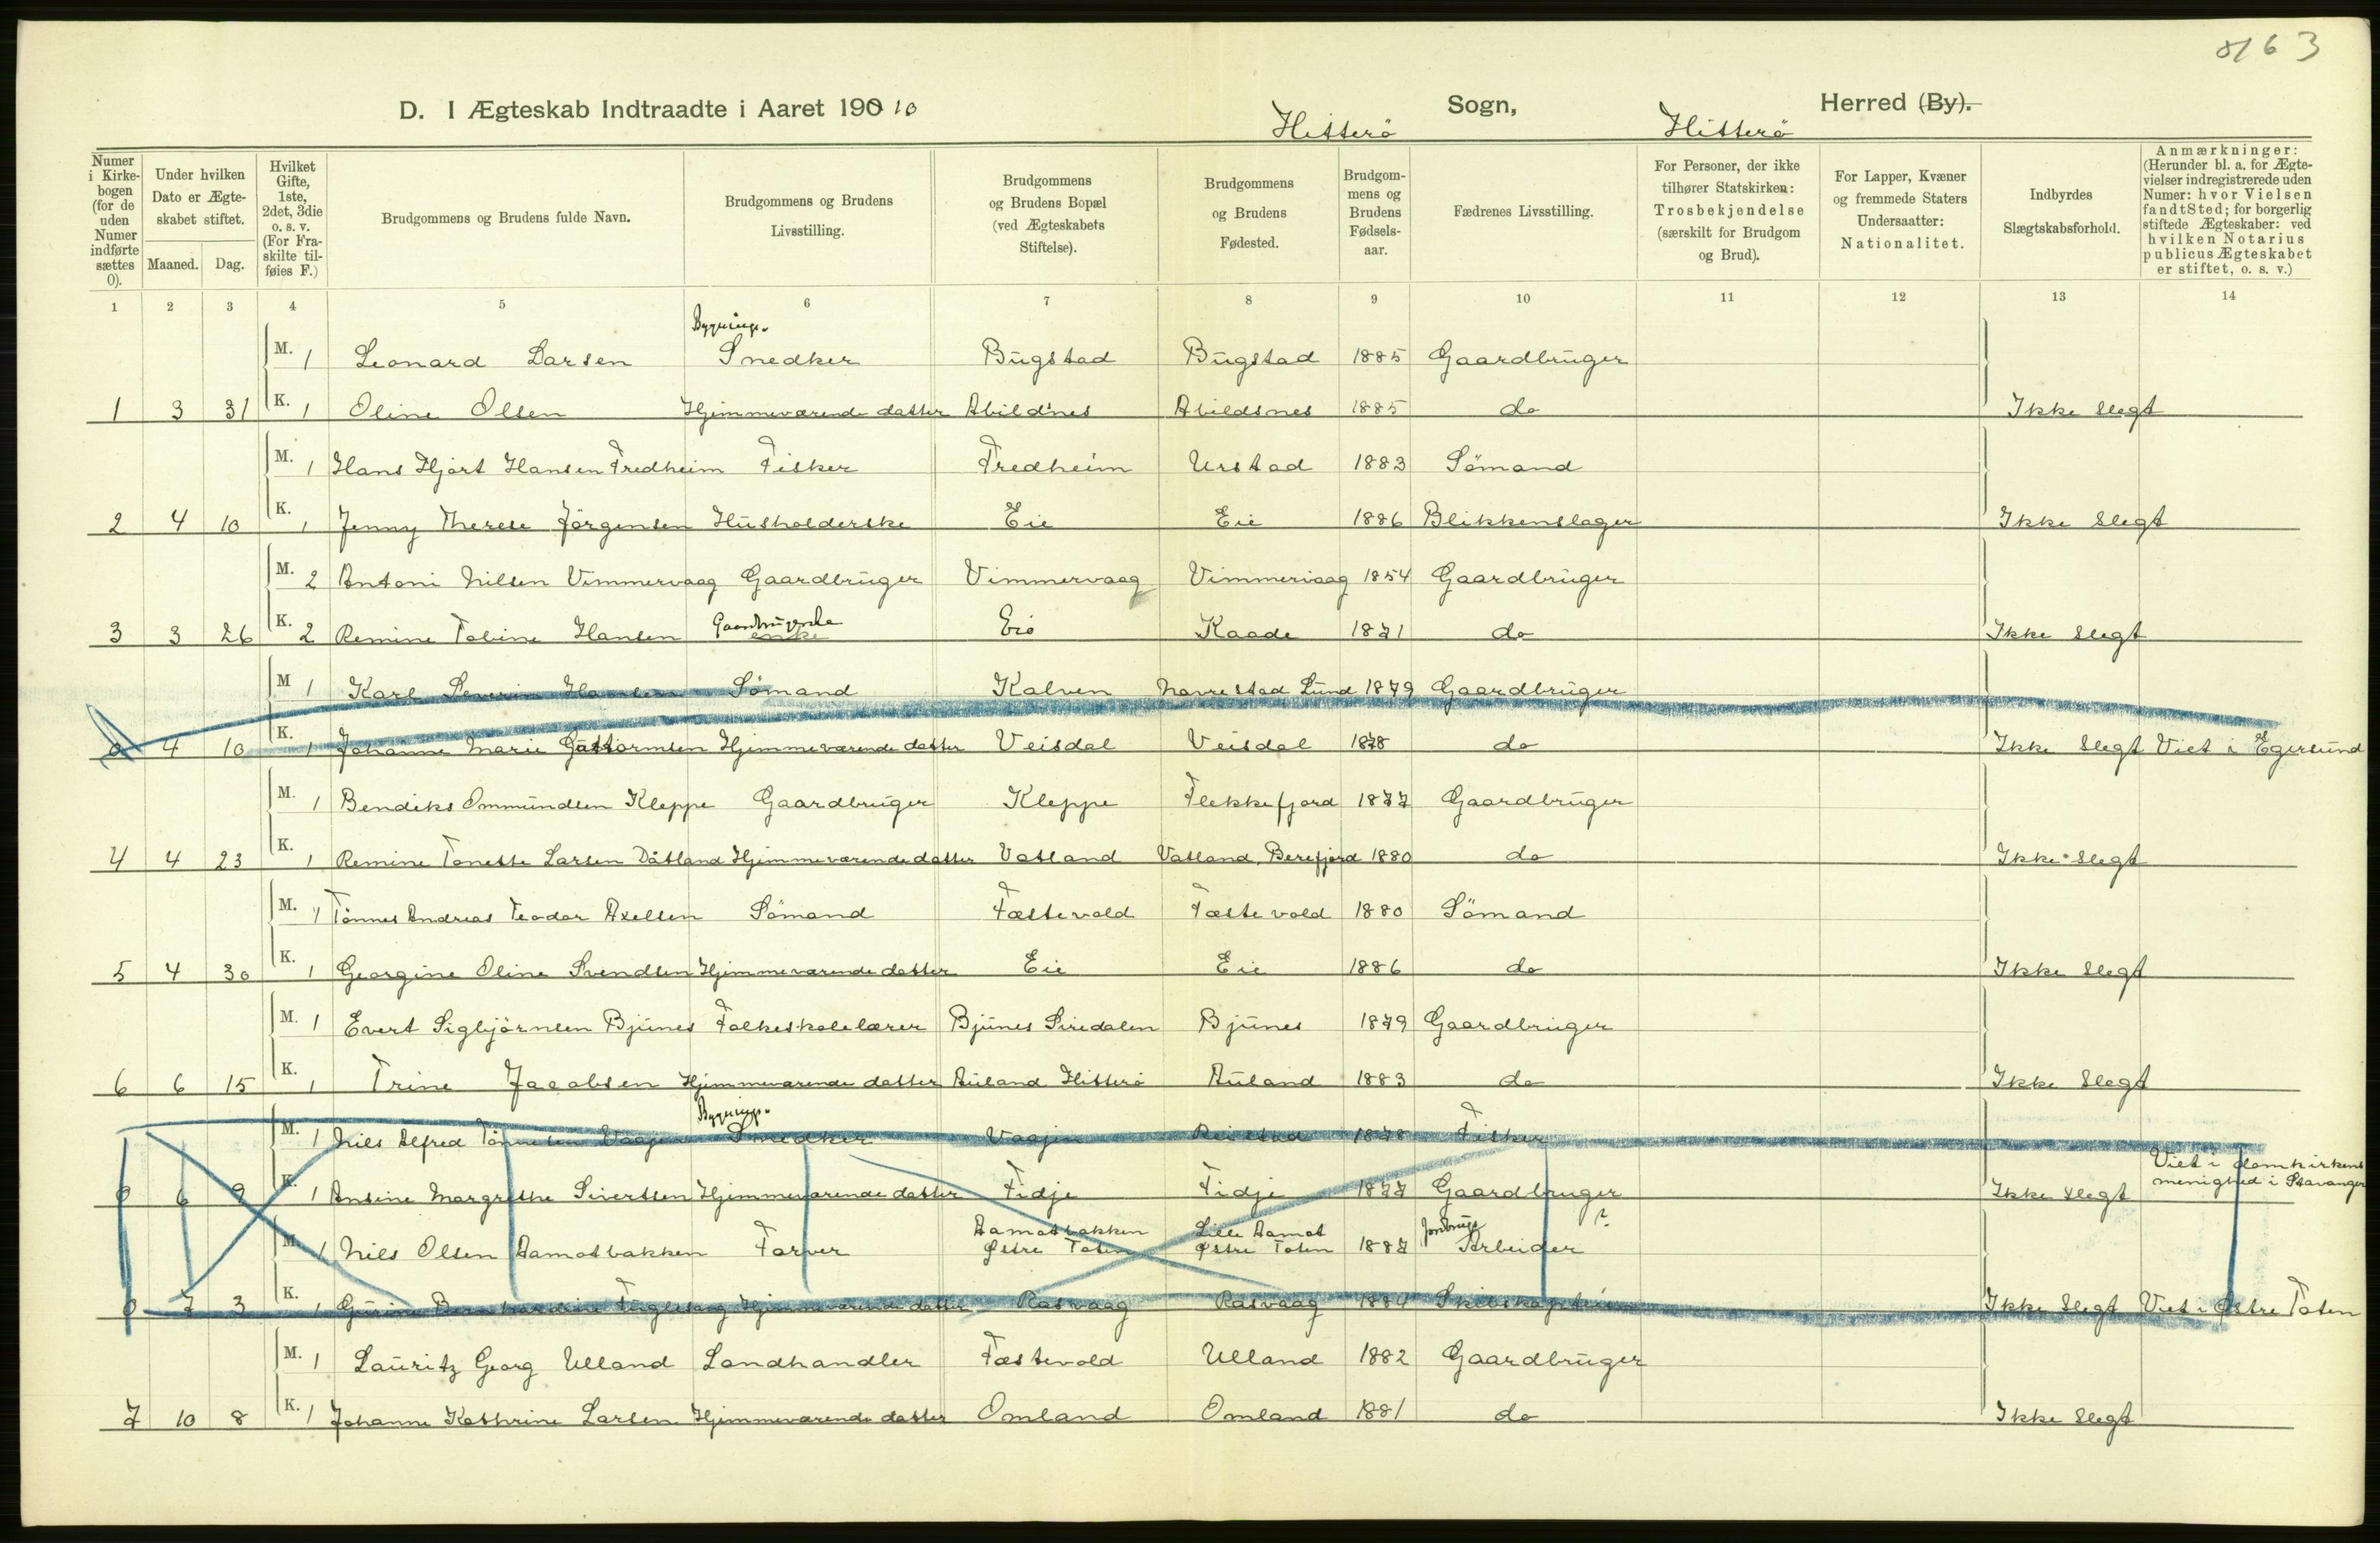 8163
D. I Ægteskab Indtraadte i Aaret 1910
Hitterö Sogn, Hitterö Herred (By).
Numer i Kirkebogen (for de uden Numer indførte sættes 0).
Under hvilken Dato er Ægteskabet stiftet.
Maaned. Dag.
Hvilket Gifte, 1ste, 2det, 3die o. s. v. (For Fraskilte tilføies F.)
Brudgommens og Brudens fulde Navn.
Brudgommens og Brudens Livsstilling.
Brudgommens og Brudens Bopæl (ved Ægteskabets Stiftelse).
Brudgommens og Brudens Fødested.
Brudgommens og Brudens Fødselsaar.
Fædrenes Livsstilling.
For Personer, der ikke tilhører Statskirken: Trosbekjendelse (særskilt for Brudgom og Brud).
For Lapper, Kvæner og fremmede Staters Undersaatter: Nationalitet.
Indbyrdes Slægtskabsforhold.
Anmærkninger: (Herunder bl. a. for Ægtevielser indregistrerede uden Numer: hvor Vielsen fandt Sted; for borgerlig stiftede Ægteskaber: ved hvilken Notarius publicus Ægteskabet er stiftet, o. s. v.)
1 2 3 4 5 6 7 8 9 10 11 12 13 14
M. 1 Leonard Larsen Bygnings- Snedker Bugstad Bugstad 1885 Gaardbruger
1 3 31 K. 1 Oline Olsen Hjemmeværende datter Abildnes Abildsnes 1885 do Ikke slegt
M. 1 Hans Hjort Hansen Fredheim Fisker Fredheim Urstad 1883 Sömand
2 4 10 K. 1 Jenny Therese Jörgensen Husholderske Eie Eie 1886 Blikkenslager Ikke slegt
M. 2 Antoni Nilsen Vimmervaag Gaardbruger Vimmervaag Vimmervaag 1854 Gaardbruger
3 3 26 K. 2 Remine Tobine Hansen enke Eie Kaade 1871 do Ikke slegt
M 1 Karl Severin Hansen Sömand Kalven Navrestad Lund 1879 Gaardbruger
0 4 10 K. 1 Johanne Marie Guttormsen Hjemmeværende datter Veisdal Veisdal 1878 do Ikke slegt Viet i Egersund
M. 1 Bendiks Ommundsen Kleppe Gaardbruger Kleppe Flekkefjord 1877 Gaardbruger
4 4 23 K. 1 Remine Tonette Larsen Dåtland Hjemmeværende datter Vatland Vatland, Berefjord 1880 do Ikke slegt
M. 1 Tönnes Andreas Teodor Axelsen Sömand Fæstevold Fæstevold 1880 Sömand
5 4 30 K. 1 Georgine Oline Svendsen Hjemmeværende datter Eie Eie 1886 do Ikke slegt
M. 1 Evert Sigbjörnsen Bjunes Folkeskolelærer Bjunes Siredalen Bjunes 1879 Gaardbruger
6 6 15 K. 1 Trine Jacobsen Hjemmeværende datter Auland Hitterö Auland 1883 do Ikke Slegt
M. 1 Nils Alfred Tönnesen Vaagen Bygnings- Snedker Vaagen Reistad 1878 Fisker
0 6 9 K. 1 Ansine Margrethe Sivertsen Hjemmeværende datter Fidje Fidje 1877 Gaardbruger Ikke slegt Viet i domkirkens menighed i Stavanger
M. 1 Nils Olsen Aamotbakken Farver Aamotbakken Østre Toten Lille Aamot Østre Toten 1887 Jordbrugs Arbeider ?
0 7 3 K. 1 Gurine Bernhardine Fuglevaag Hjemmeværende datter Rasvaag Rasvaag 1884 Skibskaptein Ikke slegt Viet i Østre Toten
M. 1 Lauritz Georg Ulland Landhandler Fæstevold Ulland 1882 Gaardbruger
7 10 8 K. 1 Johanne Kathrine Larsen Hjemmeværende datter Omland Omland 1881 do Ikke slegt